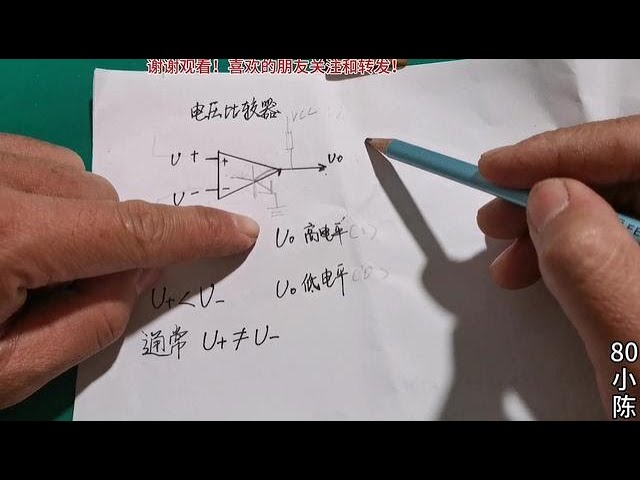 谢谢观看！喜欢的朋友关注和转发！
电压比较器
VCC
U +
+
U -
-
U₀
U₀ 高电平(1)
U₊<U₋ U₀ 低电平(0)
通常 U₊≠U₋
80
小
陈